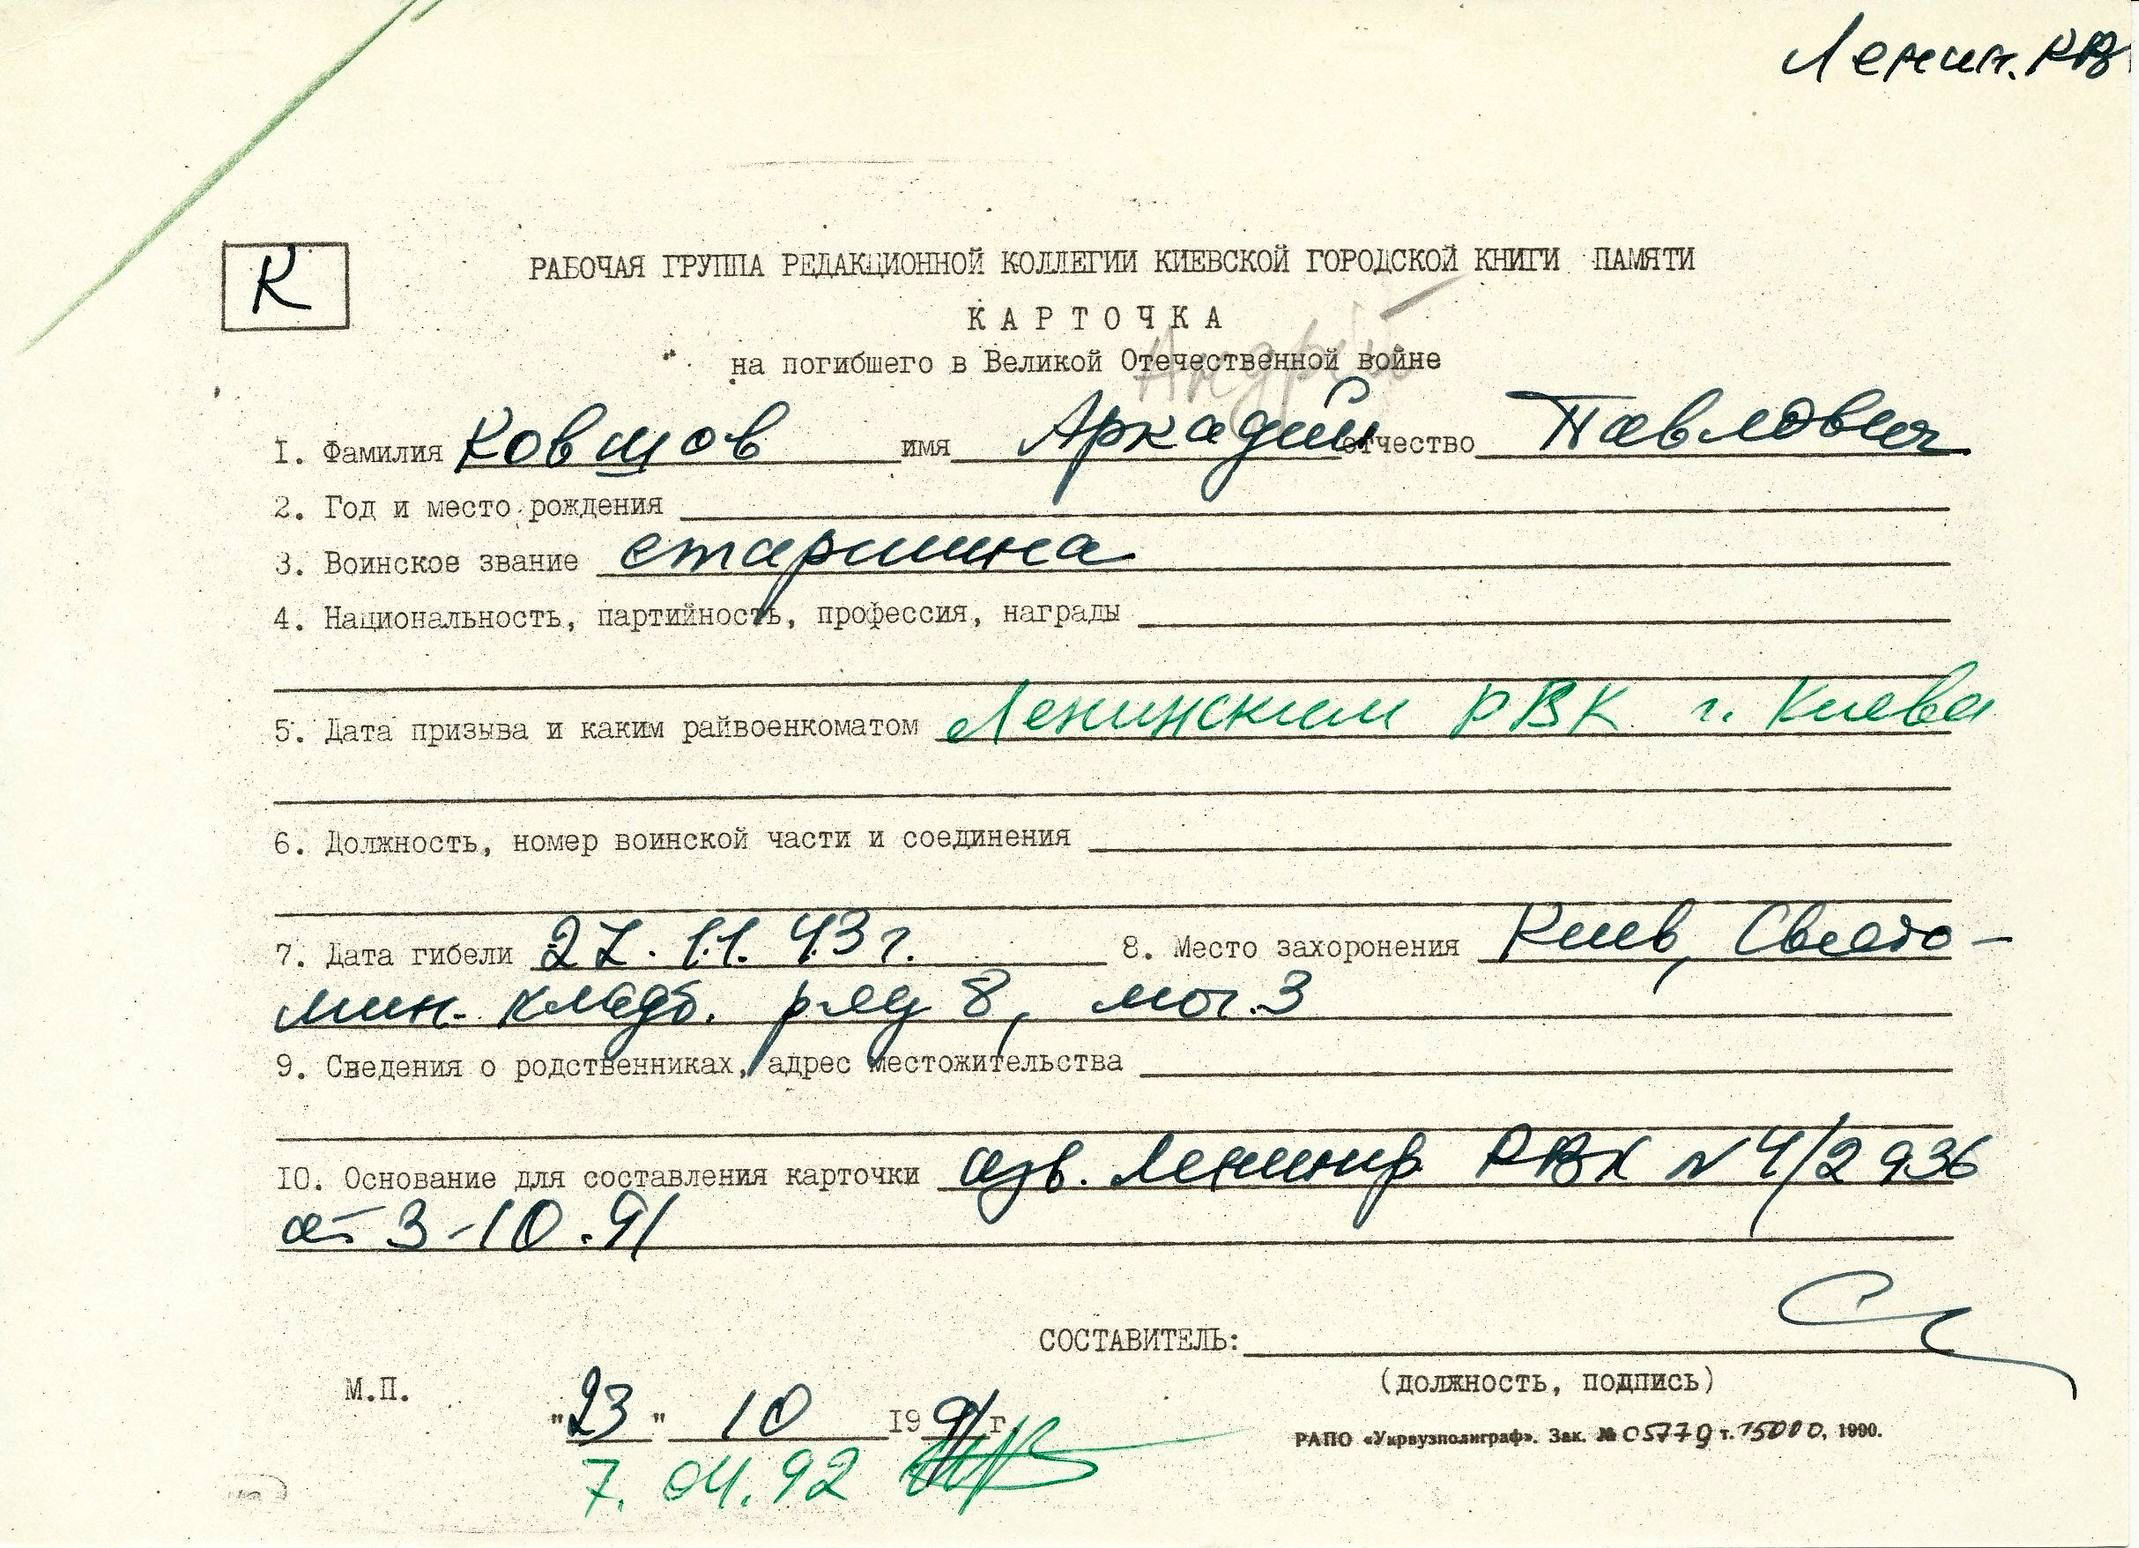 Ленин. РВ
К
РАБОЧАЯ ГРУППА РЕДАКЦИОННОЙ КОЛЛЕГИИ КИЕВСКОЙ ГОРОДСКОЙ КНИГИ ПАМЯТИ
КАРТОЧКА
на погибшего в Великой Отечественной войне
Андрій
1. Фамилия Ковшов имя Аркадий отчество Павлович
2. Год и место рождения
3. Воинское звание старшина
4. Национальность, партийность, профессия, награды
5. Дата призыва и каким райвоенкоматом Ленинским РВК г. Киева
6. Должность, номер воинской части и соединения
7. Дата гибели 27.11.43 г. 8. Место захоронения Киев, Свято-
шин. кладб. ряд 8, мог. 3
9. Сведения о родственниках, адрес местожительства
10. Основание для составления карточки изв. РВК № 4/2936
от 3-10.91
СОСТАВИТЕЛЬ:
(должность, подпись)
М.П.
"23" 10 1991 г.
РАПО «Укрвузполиграф». Зак. № 05779 т. 15000, 1990.
7. 04. 92